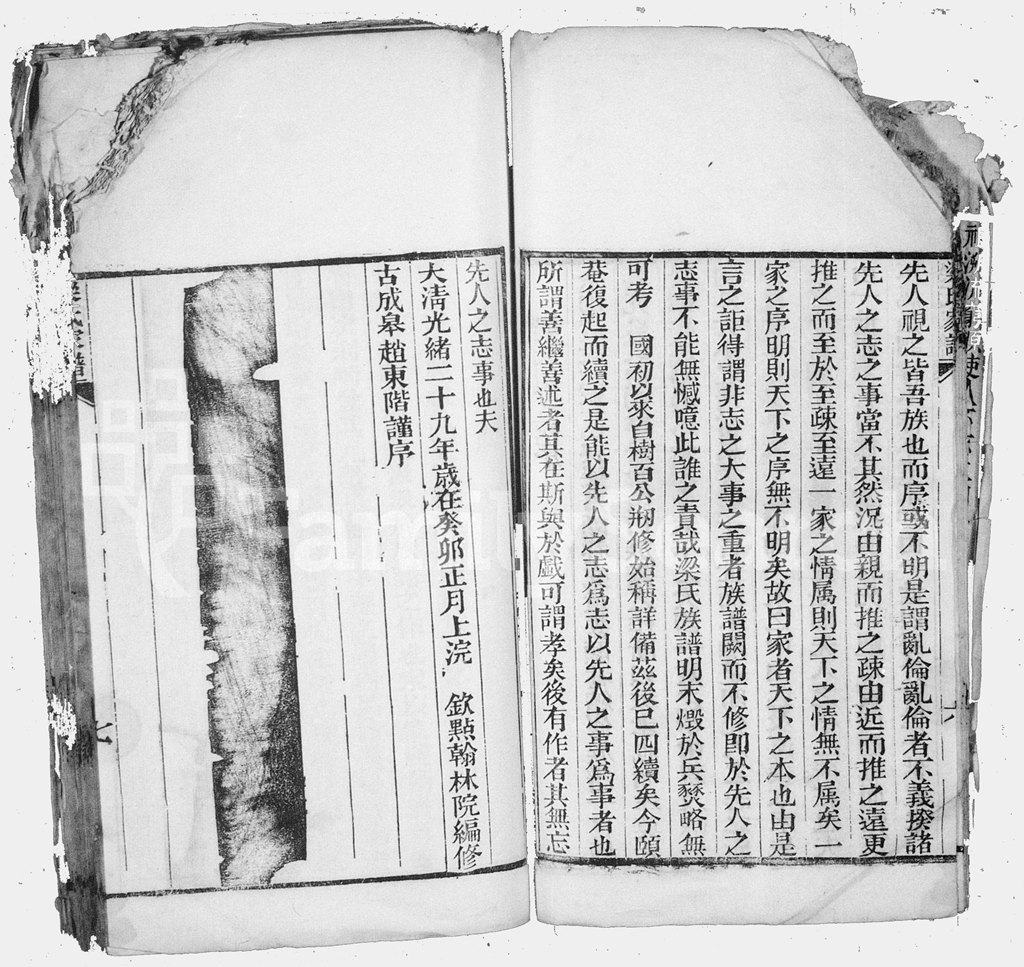 先人視之皆吾族也而序或不明是謂亂倫亂倫者不義揆諸
先人之志之事當不其然況由親而推之疎由近而推之遠更
推之而至於至疎至遠一家之情属則天下之情無不属矣一
家之序明則天下之序無不明矣故曰家者天下之本也由是
言之詎得謂非志之大事之重者族譜闕而不修即於先人之
志事不能無憾噫此誰之責哉梁氏族譜明末燬於兵燹略無
可考　國初以來自樹百公刱修始稱詳備茲後已四續矣今頤
菴復起而續之是能以先人之志爲志以先人之事爲事者也
所謂善繼善述者其在斯與於戲可謂孝矣後有作者其無忘
先人之志事也夫
大清光緒二十九年歲在癸卯正月上浣　欽點翰林院編修
古成皋趙東階謹序
七